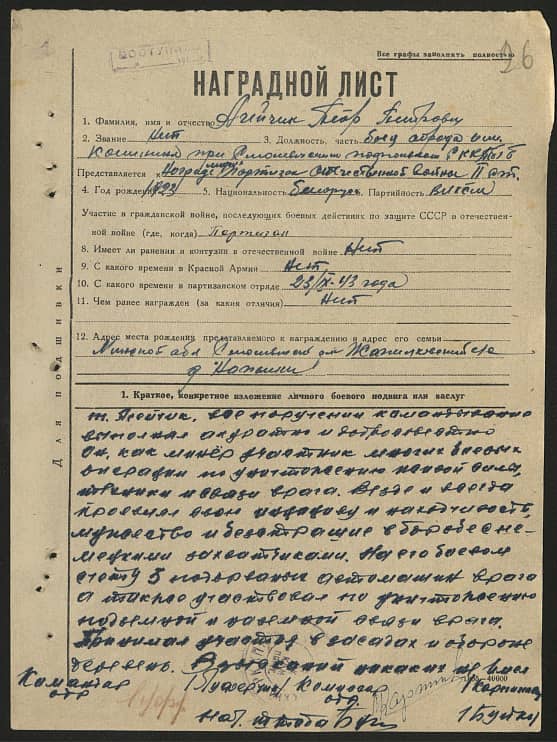 26
Все графы заполнять полностью
НАГРАДНОЙ ЛИСТ
1. Фамилия, имя и отчество Петрович
2. Звание Нет 3. Должность, часть боец отряда им.
при подпольном РККПб
Представляется к награде медаль "Партизан отечественной войны II ст.
4. Год рождения 1923 5. Национальность Белорус Партийность ВЛКСМ
Участие в гражданской войне, последующих боевых действиях по защите СССР и отечествен-
ной войне (где, когда) Партизан
8. Имеет ли ранения и контузии в отечественной войне Нет
9. С какого времени в Красной Армии Нет
10. С какого времени в партизанском отряде 23/IX-43 года
11. Чем ранее награжден (за какие отличия) Нет
12. Адрес места рождения представляемого к награждению и адрес его семьи
обл
д.
Для подшивки
1. Краткое, конкретное изложение личного боевого подвига или заслуг
т. все поручении командывания
выполнял акуратно и добросовестно
он, как минёр участник многих боевых
операции по уничтожению живой силы,
техники и связи врага. Везде и всегда
проявлял свою и находчивость,
мужество и безстрашие в борьбе с не-
мецкими захватчиками. На его боевом
счету 5 подорваных автомашин врага
а также участвовал по уничтожению
подземной и наземной связи врага.
Принимал участие в засадах и обороне
деревень. никаких не имел
Командир Комиссар
отр. отр.
нач. штаба